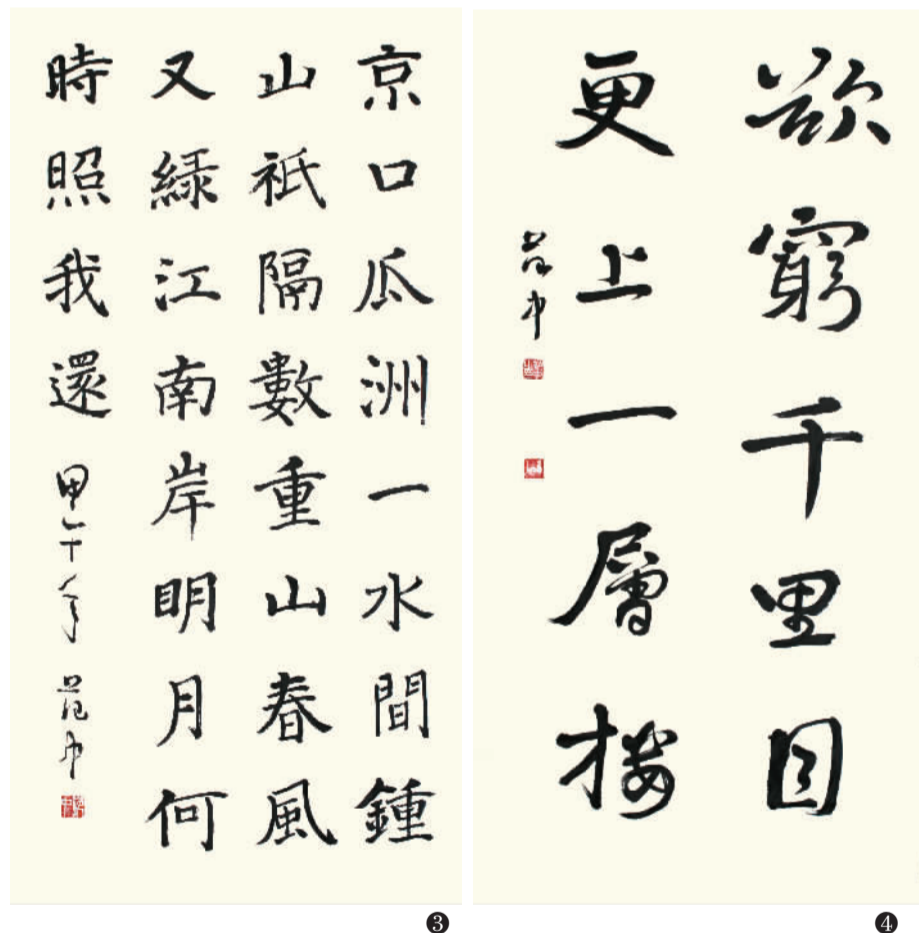 京口瓜洲一水間鍾
山祇隔數重山春風
又緑江南岸明月何
時照我還
甲午年 范中
❸
欲窮千里目
更上一層樓
范中
❹